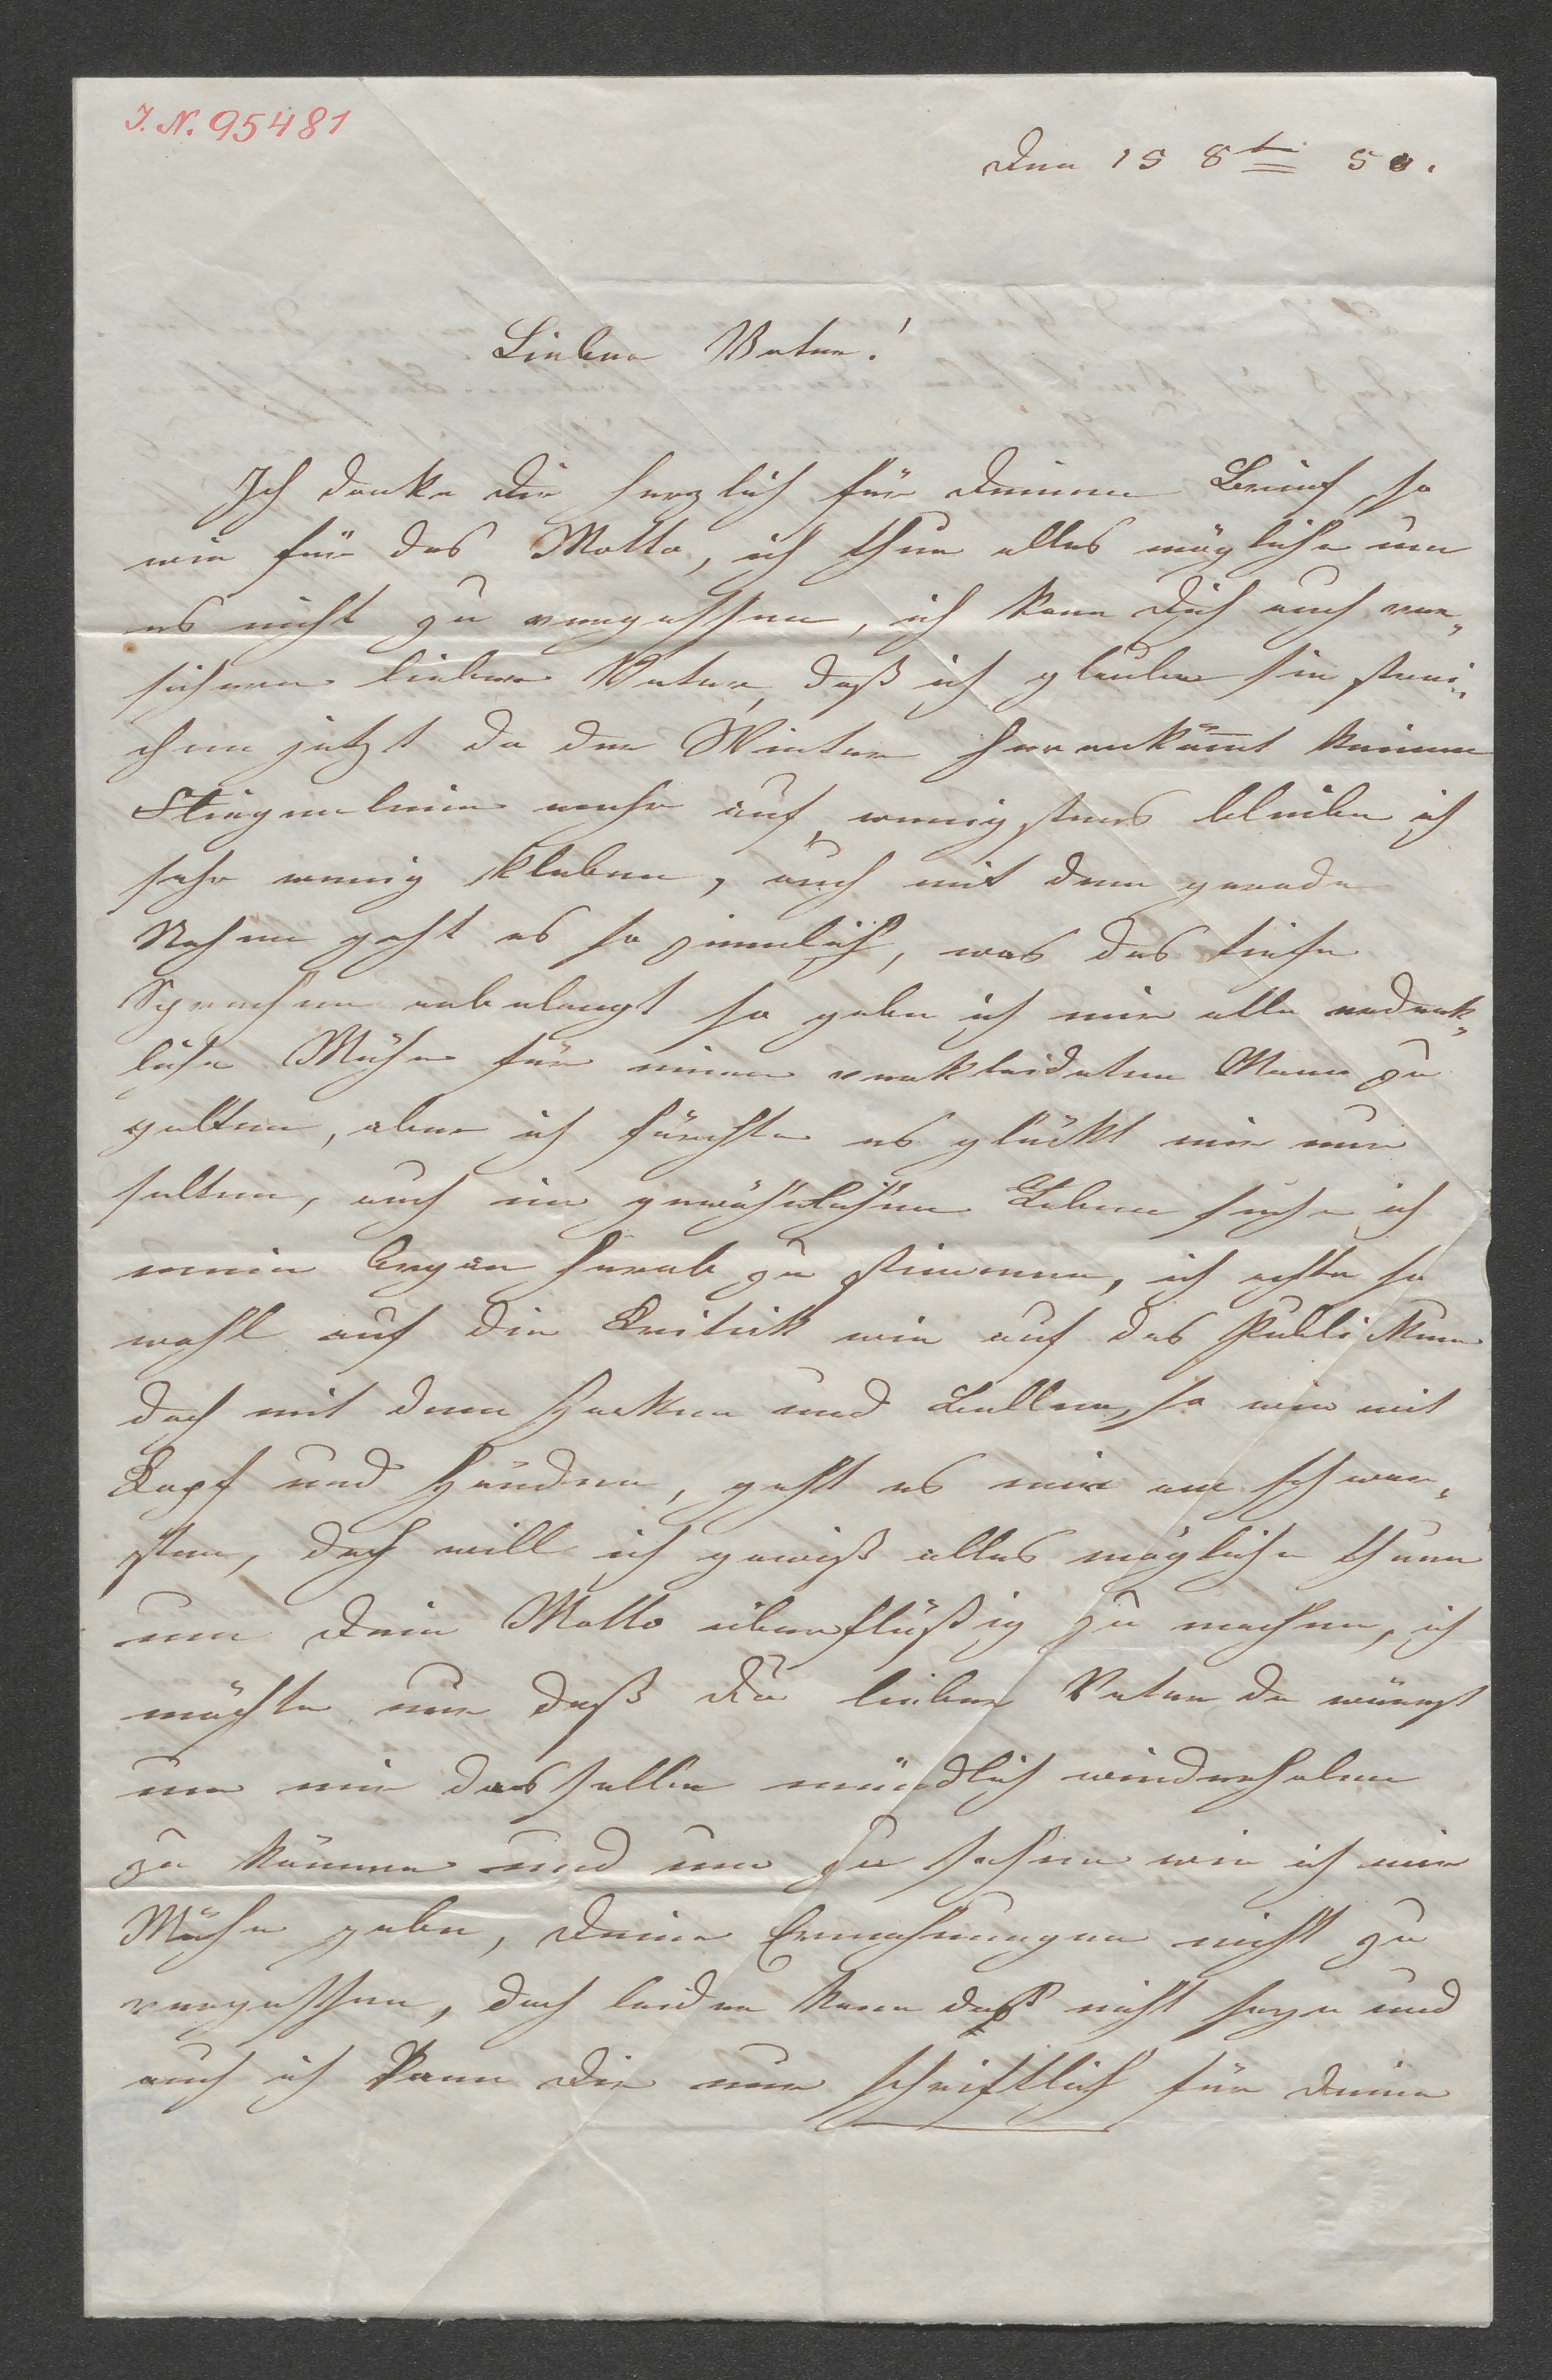 J. N. 95481
Den 15 8t 50.
Lieber Vater!
Ich danke Dir herzlich für Deinen Brief, so
wie für das Motto, ich thue alles mögliche um
es nicht zu vergessen, ich kann Dich auch ver„
sichern lieber Vater, daß ich glaube sie strei„
chen jetzt da der Winter herankom̅t keinen
Fliegenleim mehr auf, wenigstens bleibe ich
sehr wenig kleben, auch mit dem gerade
Stehen geht es so ziemlich, was das tiefe
Sprechen anbelangt so gebe ich mir alle erdenk„
liche Mühe für einen verkleideten Mann zu
gelten, aber ich fürchte es glückt mir nur
selten, auch im gewöhnlichen Leben suche ich
mein Organ herab zu stimmen, ich achte so
wohl auf die Kritik wie auf das Publikum
doch mit dem und so wie mit
Kopf und Händen, geht es mir am schwer„
sten, doch will ich gewiß alles mögliche thuen
um Dein Motto überflüßig zu machen, ich
möchte nur daß Du lieber Vater da wärest
um mir dasselbe mündlich wiederholen
zu können und um zu sehen wie ich mir
Mühe gebe, Deine Ermahnungen nicht zu
vergessen, doch leider kann daß nicht seyn und
auch ich kann Dir nur schriftlich für Deine